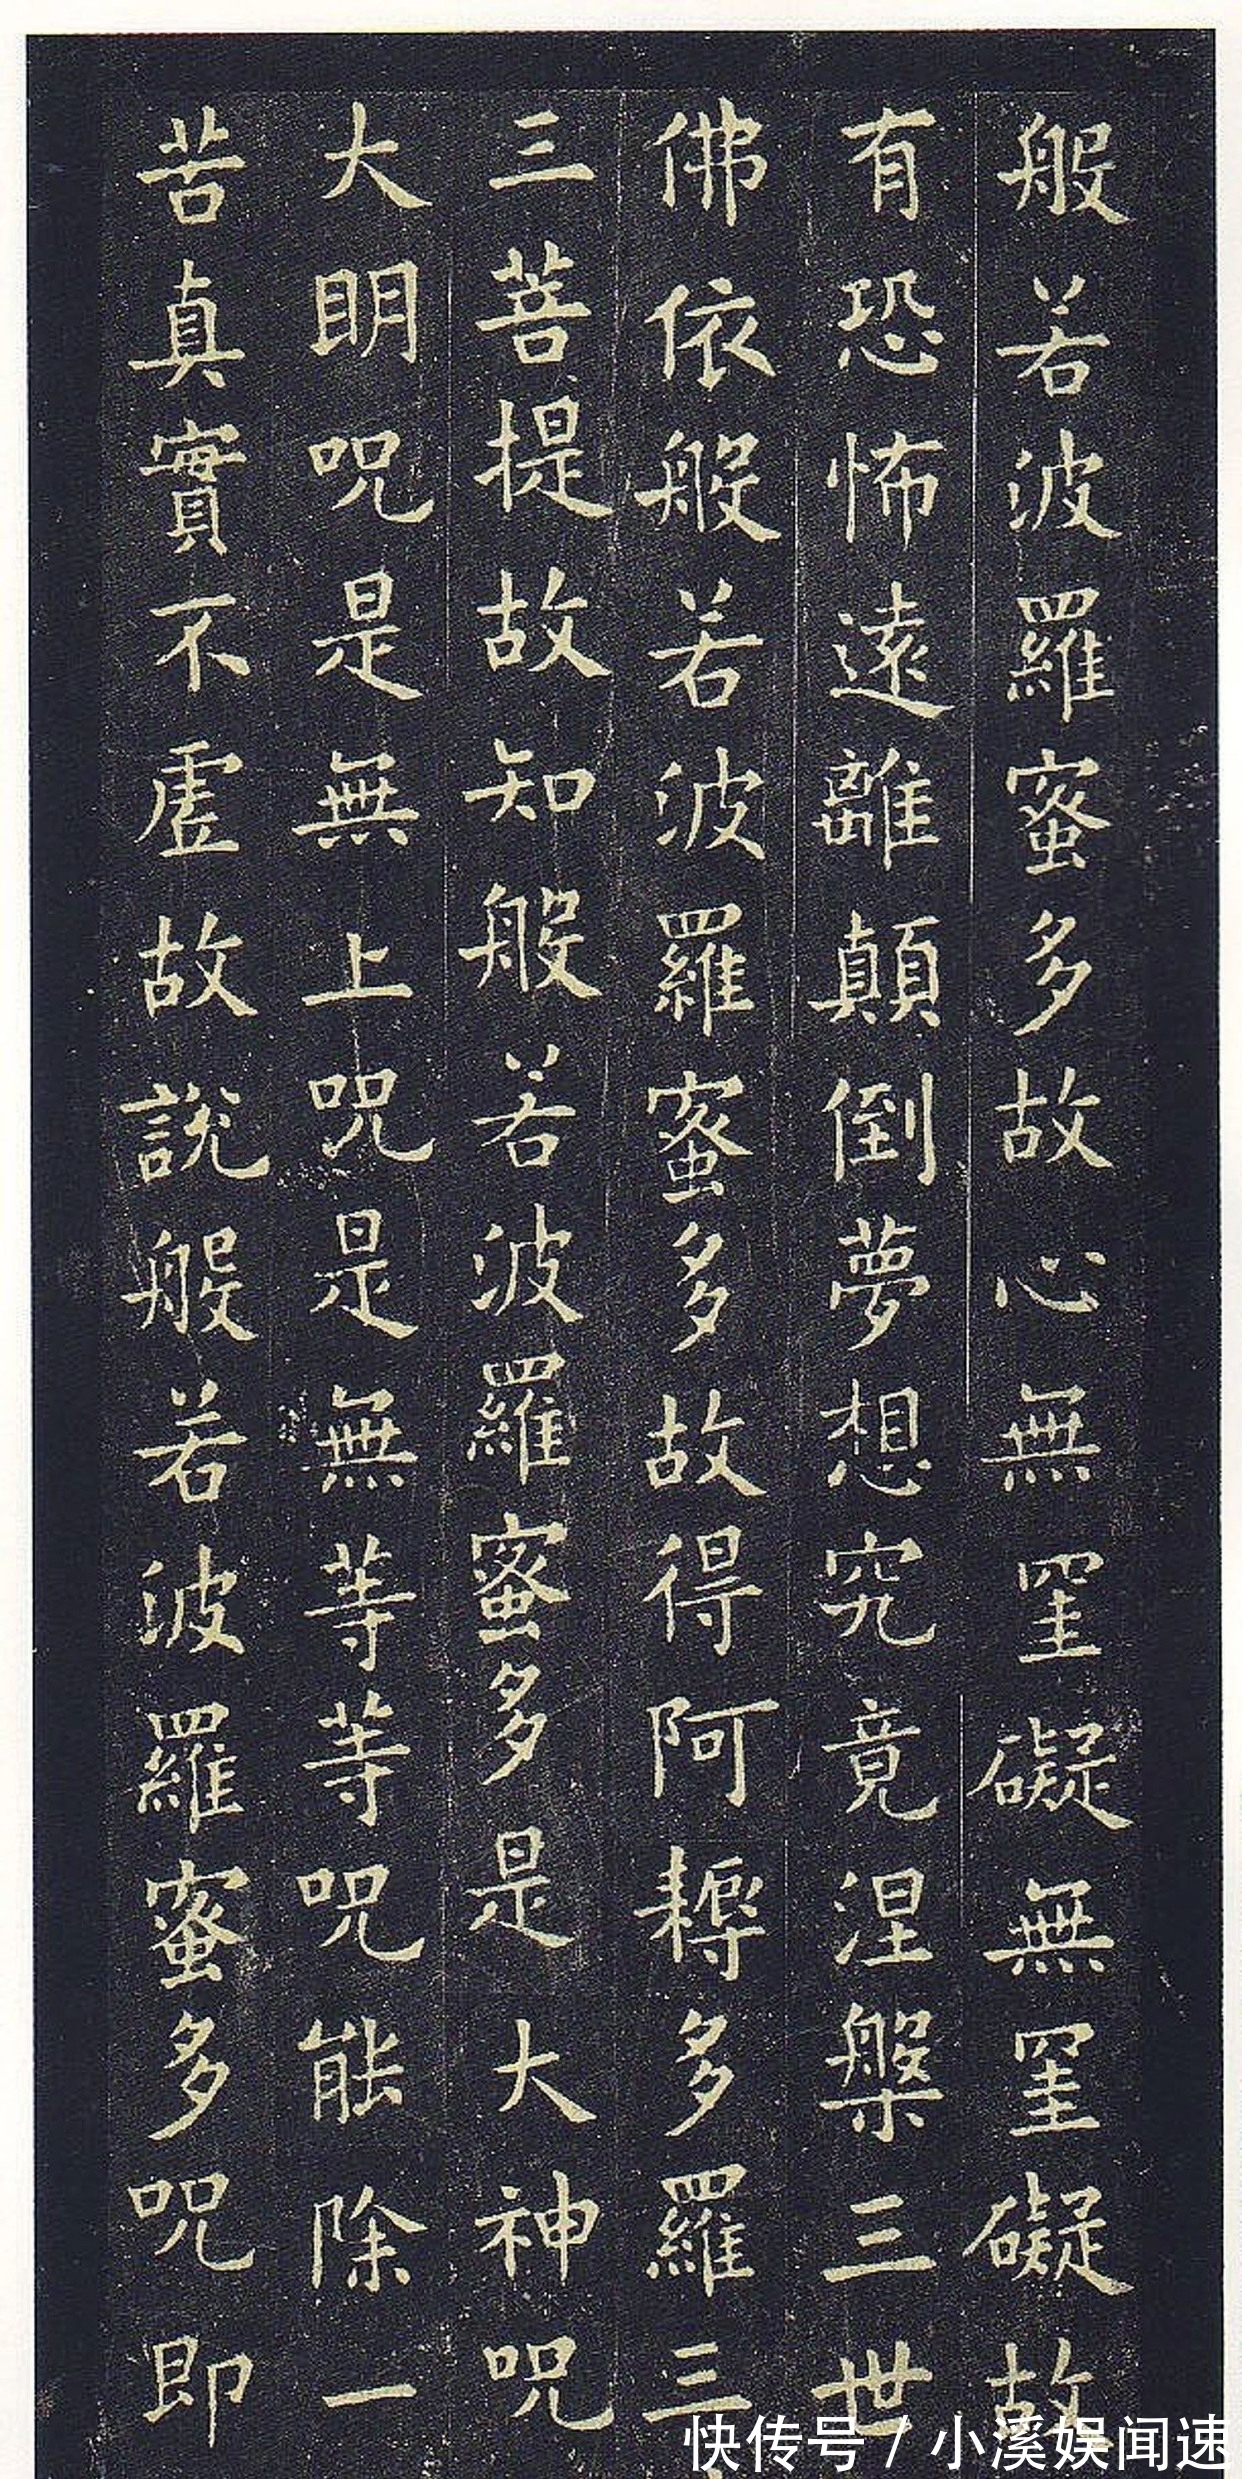 般若波羅蜜多故心無罣礙無罣礙故
有恐怖遠離顛倒夢想究竟涅槃三世
佛依般若波羅蜜多故得阿耨多羅三
三菩提故知般若波羅蜜多是大神呪
大眀呪是無上呪是無等等呪能除一
苦真實不虛故說般若波羅蜜多呪即
快传号 / 小溪娱闻速